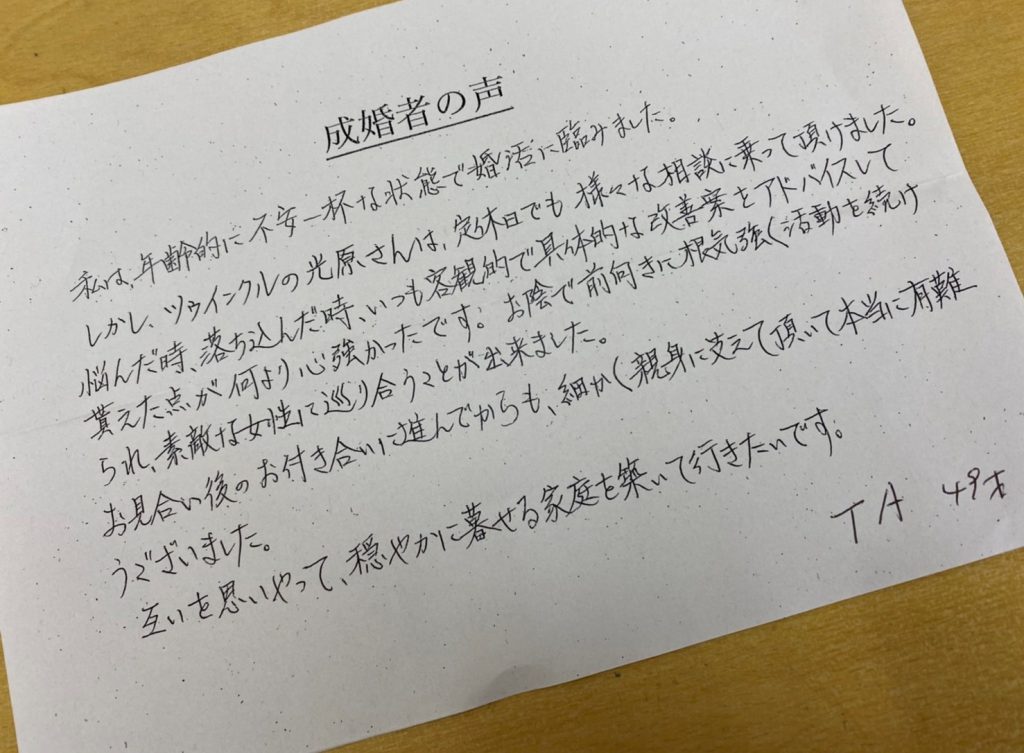 成婚者の声
私は、年齢的に不安一杯な状態で婚活に臨みました。
しかし、ツゥインクルの光原さんは、定休日でも様々な相談に乗って頂けました。
悩んだ時、落ち込んだ時、いつも客観的で具体的な改善案をアドバイスして
貰えた点が何より心強かったです。お陰で前向きに根気強く活動を続け
られ、素敵な女性に巡り合うことが出来ました。
お見合い後のお付き合いに進んでからも、細かく親身に支えて頂いて本当に有難
うございました。
互いを思いやって、穏やかに暮せる家庭を築いて行きたいです。
TA 49才